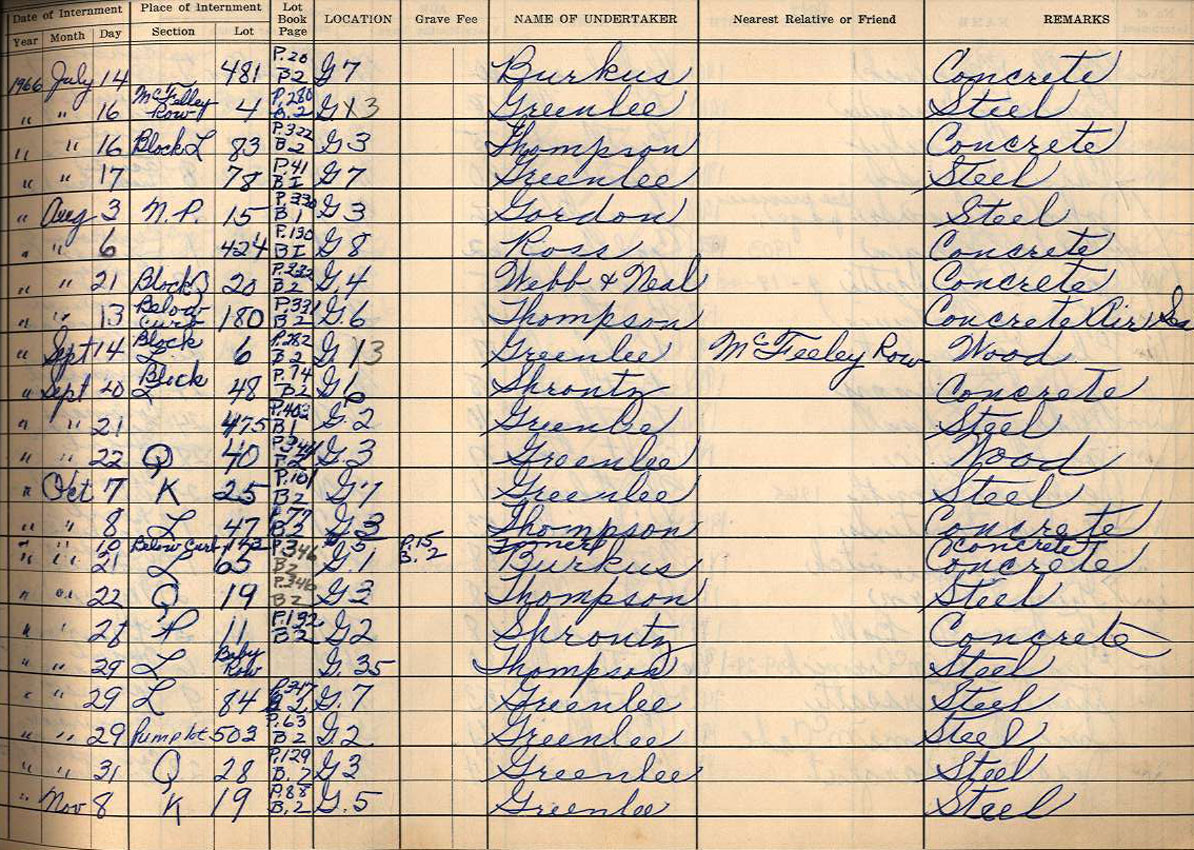 Date of Internment Place of Internment Lot Book Page LOCATION Grave Fee NAME OF UNDERTAKER Nearest Relative or Friend REMARKS
Year Month Day Section Lot
1966 July 14 481 P.20 B2 G7 Burkus Concrete
" " 16 McFelley Row 4 P.280 B.2 G X3 Greenlee Steel
" " 16 Block L 83 P.322 B2 G3 Thompson Concrete
" " 17 78 P.41 BI G7 Greenlee Steel
" Aug 3 N.P. 15 P.330 B1 G3 Gordon Steel
" " 6 424 P.130 BI G8 Ross Concrete
" " 21 Block 20 P.332 B2 G.4 Webb & Neal Concrete
" " 13 Below Curb 180 P.331 B2 G6 Thompson Concrete Air Sea
" Sept 14 Block L 6 P.282 B2 G 13 Greenlee McFeeley Row Wood
" Sept 20 Block L 48 P.74 B2 G6 Shrontz Concrete
" " 21 475 P.402 B1 G.2 Greenlee Steel
" " 22 Q 40 P.344 B2 G.3 Greenlee Wood
" Oct 7 K 25 P.101 B2 G.7 Greenlee Steel
" " 8 L 47 P.77 B.2 G.3 Thompson Concrete
" " 10 Below Curb 173 G.5 P.15 B.2 Concrete
" " 21 L 65 P.346 B2 G.1 Burkus Concrete
" " 22 Q 19 P.346 B2 G3 Thompson Steel
" " 28 P 11 P.192 B.2 G2 Shrontz Concrete
" " 29 L Baby Row G.35 Thompson Steel
" " 29 L 84 P.347 B2 G.7 Greenlee Steel
" " 29 Pump lot 503 P.63 B2 G2 Greenlee Steel
" " 31 Q 28 P.129 B.2 G3 Greenlee Steel
" Nov 8 K 19 P.88 B.2 G.5 Greenlee Steel